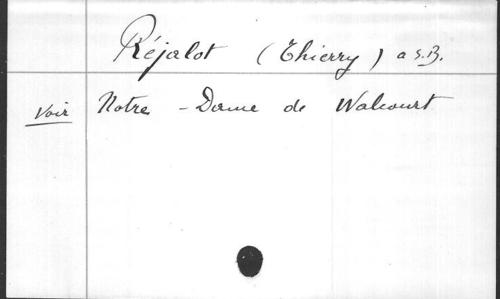 Réjalot (Thierry) O.S.B.
Voir Notre-Dame de Walcourt